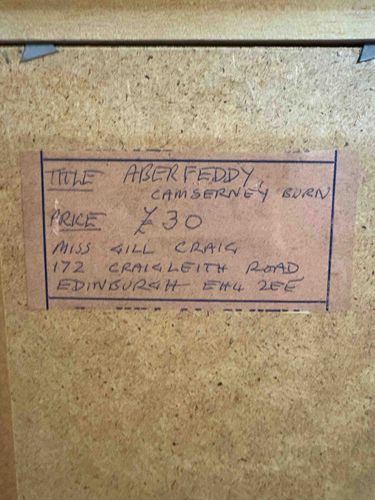 TITLE ABERFEDDY,
CAMSERNEY BURN
PRICE £30
MISS GILL CRAIG
172 CRAIGLEITH ROAD
EDINBURGH EH4 2EE